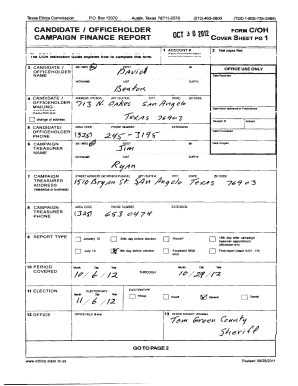 Texas Ethics Commission P.O. Box 12070 Austin, Texas 78711-2070 (512) 463-5800 (TDD 1-800-735-2989)
CANDIDATE / OFFICEHOLDER
CAMPAIGN FINANCE REPORT
OCT 30 2012
FORM C/OH
COVER SHEET PG 1
The C/OH Instruction Guide explains how to complete this form.
1 ACCOUNT #
2 Total pages filed:
3 CANDIDATE / OFFICEHOLDER NAME
MS / MRS / MR FIRST MI
David
NICKNAME LAST SUFFIX
Benton
OFFICE USE ONLY
Date Received
4 CANDIDATE / OFFICEHOLDER MAILING ADDRESS
change of address
713 N. Oakes San Angelo
Texas 76903
Date Hand-delivered or Postmarked
Receipt # Amount
5 CANDIDATE/ OFFICEHOLDER PHONE
AREA CODE PHONE NUMBER EXTENSION
(325) 245-3195
Date Processed
6 CAMPAIGN TREASURER NAME
MS / MRS / MR FIRST MI
Jim
Date Imaged
NICKNAME LAST SUFFIX
Ryan
7 CAMPAIGN TREASURER ADDRESS
(residence or business)
STREET ADDRESS (NO PO BOX PLEASE); APT / SUITE #; CITY; STATE; ZIP CODE
1510 Bryan St San Angelo Texas 76903
8 CAMPAIGN TREASURER PHONE
AREA CODE PHONE NUMBER EXTENSION
(325) 653 0474
9 REPORT TYPE
January 15 30th day before election Runoff 15th day after campaign treasurer appointment (officeholder only)
July 15 8th day before election Exceeded $500 limit Final report (Attach C/OH - FR)
10 PERIOD COVERED
Month Day Year THROUGH Month Day Year
10/6/12 10/29/12
11 ELECTION
ELECTION DATE
Month Day Year
11/6/12
ELECTION TYPE
Primary Runoff General Special
12 OFFICE
OFFICE HELD (if any)
13 OFFICE SOUGHT (if known)
Tom Green County
Sheriff
GO TO PAGE 2
www.ethics.state.tx.us Revised 09/28/2011